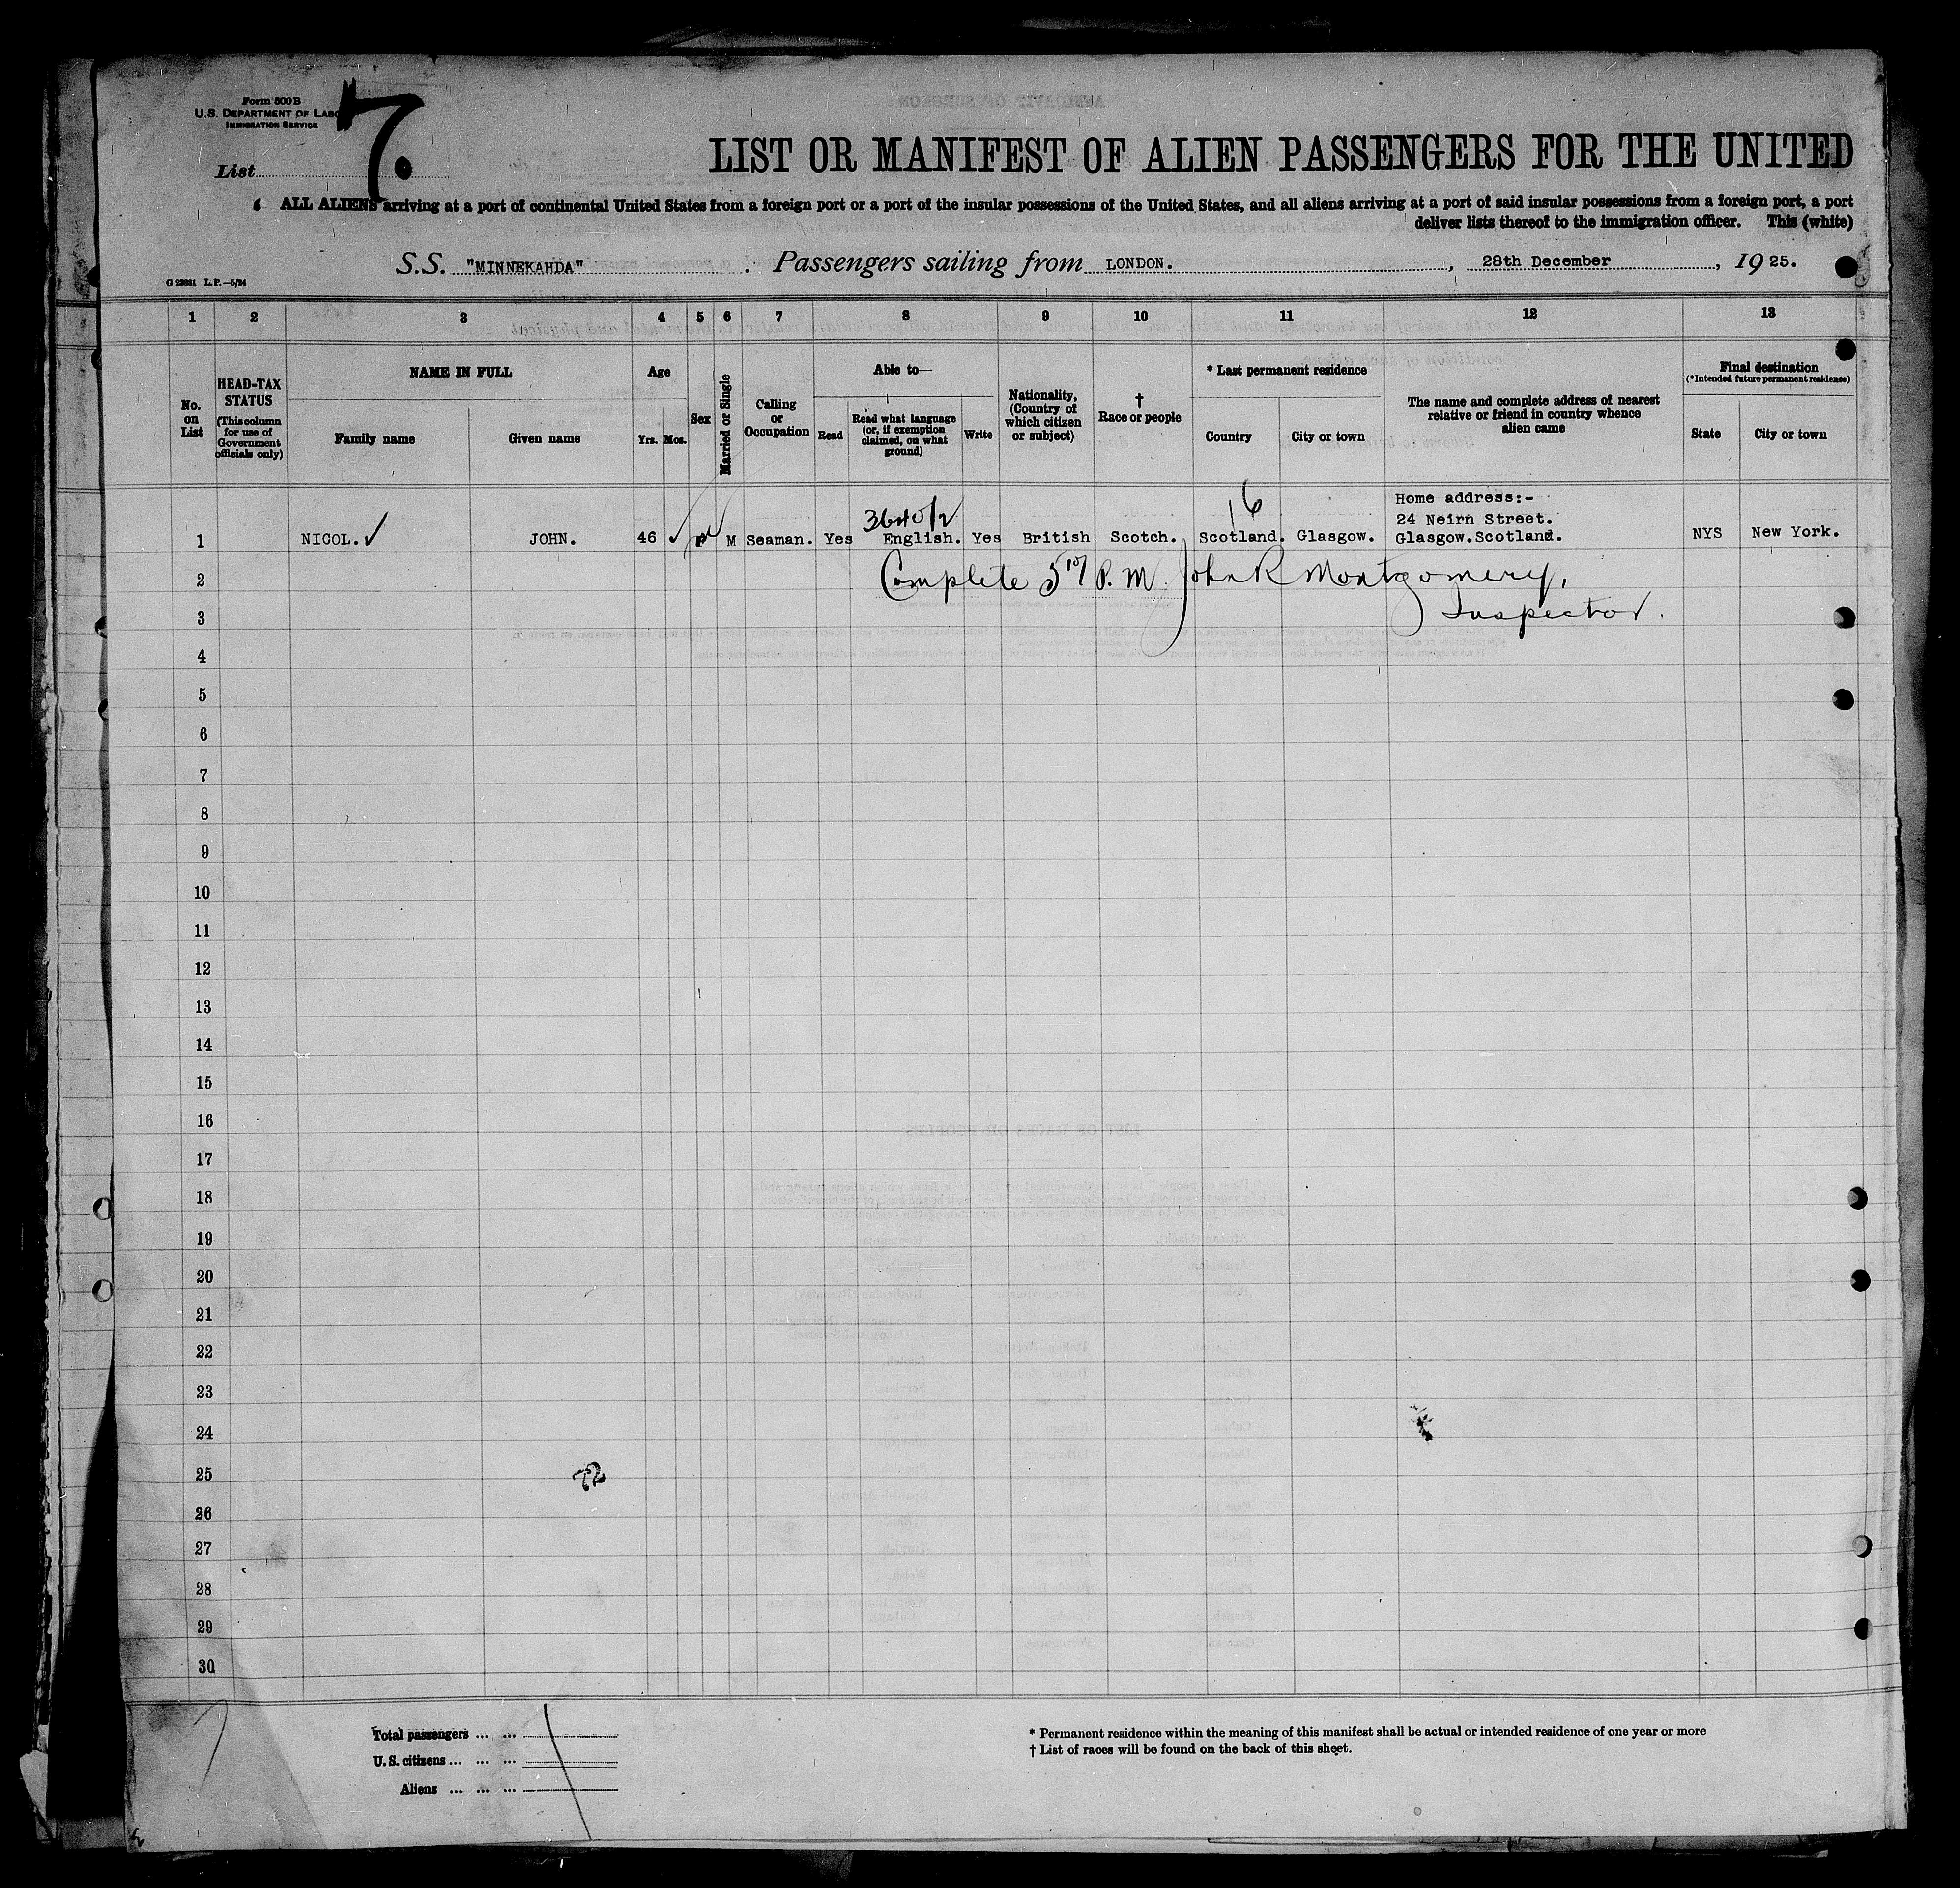 Form 500 B
U.S. DEPARTMENT OF LABO
IMMIGRATION SERVICE
7.
List
LIST OR MANIFEST OF ALIEN PASSENGERS FOR THE UNITED
ALL ALIENS arriving at a port of continental United States from a foreign port or a port of the insular possessions of the United States, and all aliens arriving at a port of said insular possessions from a foreign port, a port
deliver lists thereof to the immigration officer. This (white)
S.S. "MINNEKAHDA" . Passengers sailing from LONDON. , 28th December , 1925.
G 23881 L.P.—5/24
1 2 3 4 5 6 7 8 9 10 11 12 13
No. on List
HEAD-TAX STATUS
(This column for use of Government officials only)
NAME IN FULL
Family name
Given name
Age
Yrs. Mos.
Sex
Married or Single
Calling or Occupation
Able to—
Read
Read what language (or, if exemption claimed, on what ground)
Write
Nationality, (Country of which citizen or subject)
† Race or people
* Last permanent residence
Country
City or town
The name and complete address of nearest relative or friend in country whence alien came
Final destination
(*Intended future permanent residence)
State
City or town
16
Home address:-
24 Neirn Street.
1 NICOL. ✓ JOHN. 46 ✓ M Seaman. Yes English. Yes British Scotch. Scotland. Glasgow. Glasgow.Scotland. NYS New York.
2 Complete P.M. John R Montgomery,
3 Inspector.
4
5
6
7
8
9
10
11
12
13
14
15
16
17
18
19
20
21
22
23
24
25
26
27
28
29
30
Total passengers ... ...
U.S. citizens ... ... ...
Aliens ... ... ...
* Permanent residence within the meaning of this manifest shall be actual or intended residence of one year or more
† List of races will be found on the back of this sheet.